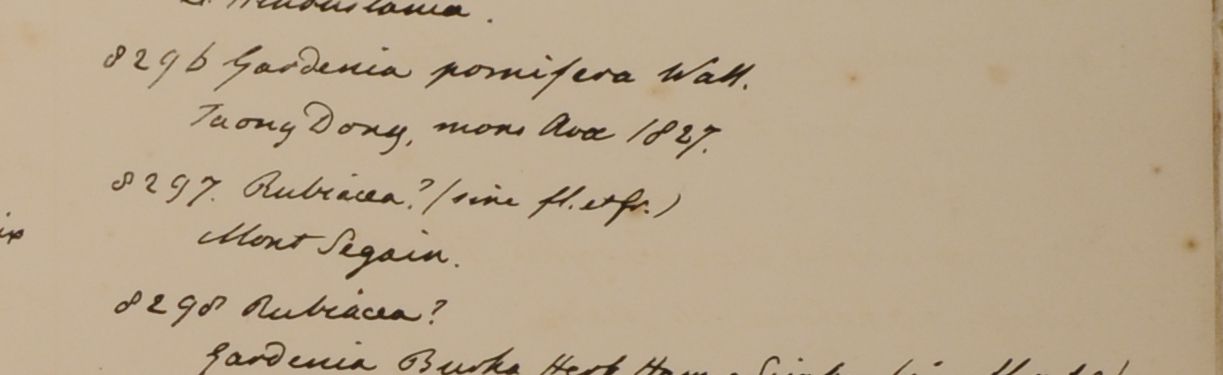 Hindustania.
8296 Gardenia pomifera Wall.
Taong Dong, mons Avæ 1827.
8297. Rubiacea? (sine fl. et fr.)
Mont Segain.
8298 Rubiacea?
Gardenia Herb Ham